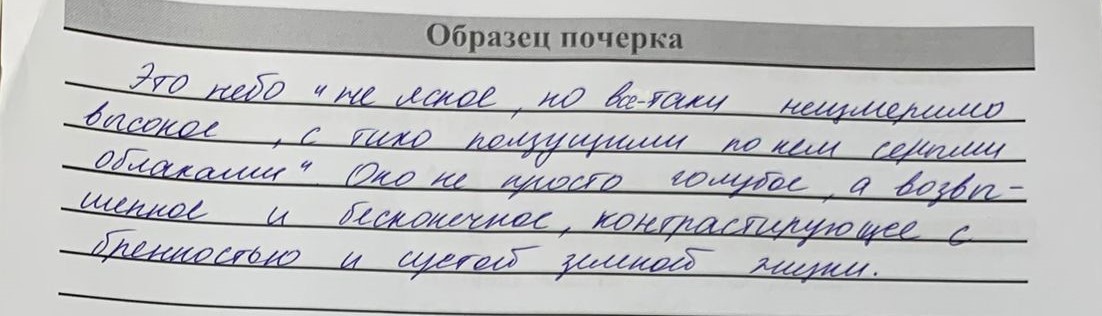 Образец почерка
Это небо "не ясное, но все-таки неизмеримо
высокое, с тихо ползущими по нем серыми
облаками". Оно не просто голубое, а возвы-
шенное и бесконечное, контрастирующее с
бренностью и суетой земной жизни.